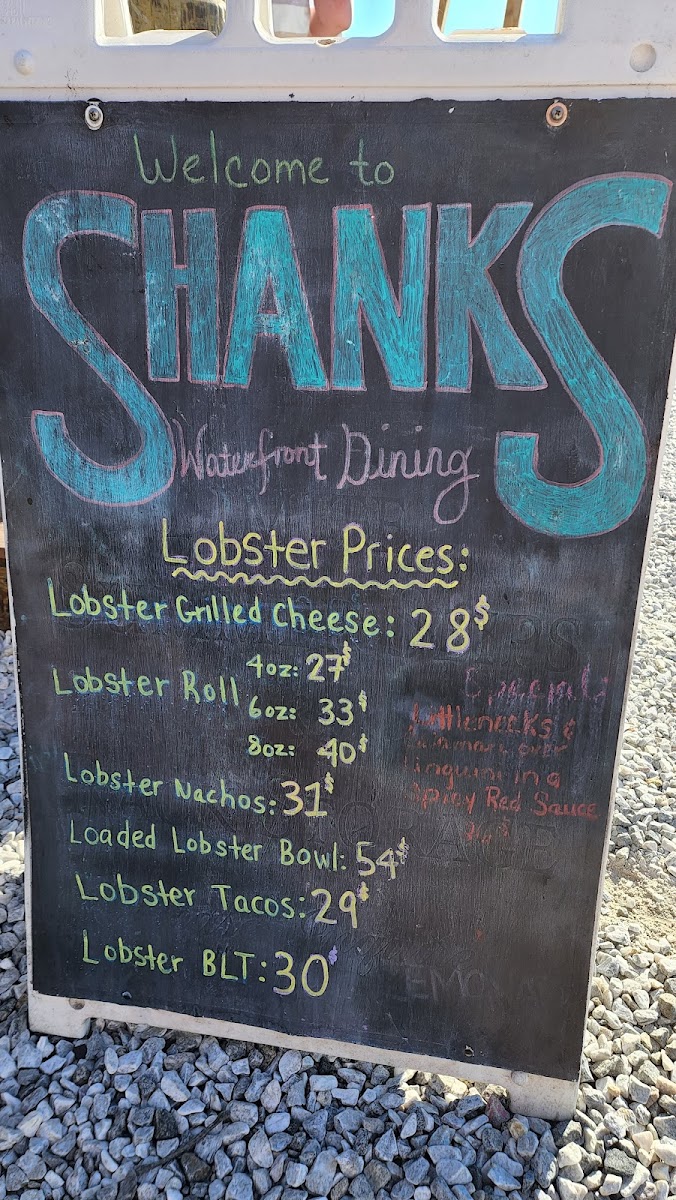 Welcome to
SHANKS
Waterfront Dining
Lobster Prices:
Lobster Grilled Cheese: 28$
Lobster Roll
4oz: 27$
6oz: 33$
8oz: 40$
Lobster Nachos: 31$
Loaded Lobster Bowl: 54$
Lobster Tacos: 29$
Lobster BLT: 30$
littlenecks &
over
in a
Spicy Red Sauce